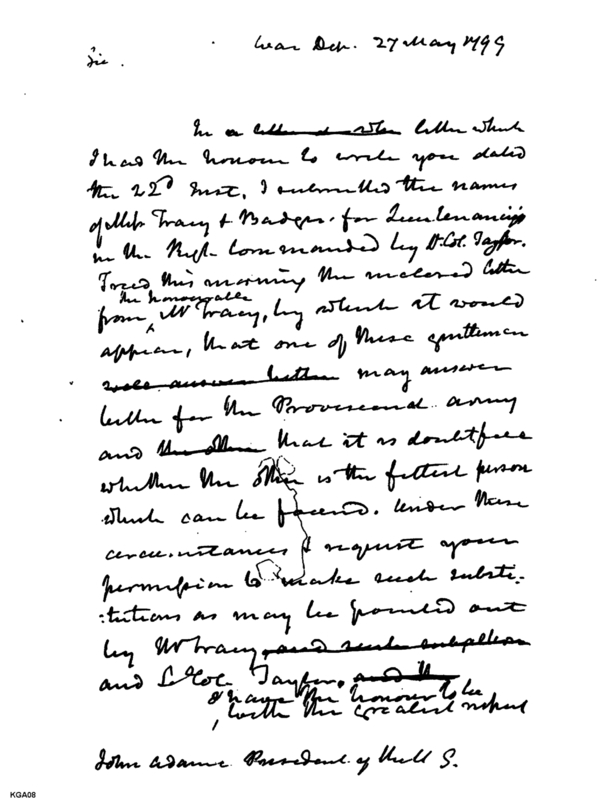 War Dep. 27 May 1799
Sir.
In a letter which
I had the honour to write you dated
the 22d Inst. I submitted the names
of Messrs Tracy & Badger for Lieutenancies
in the Regt. Commanded by Lt. Col. Taylor.
I recd this morning the inclosed letter
the honourable
from Mr Tracy, by which it would
appear, that one of these gentlemen
may answer
better for the Provisional army
and that it is doubtfull
whether the other is the fittest person
which can be found. Under these
circumstances I request your
permission to make such substi-
:tutions as may be pointed out
by Mr Tracy
and Lt Col. Taylor.
I have the honour to be
with the greatest respect
John Adams President of the U S.
KGA08